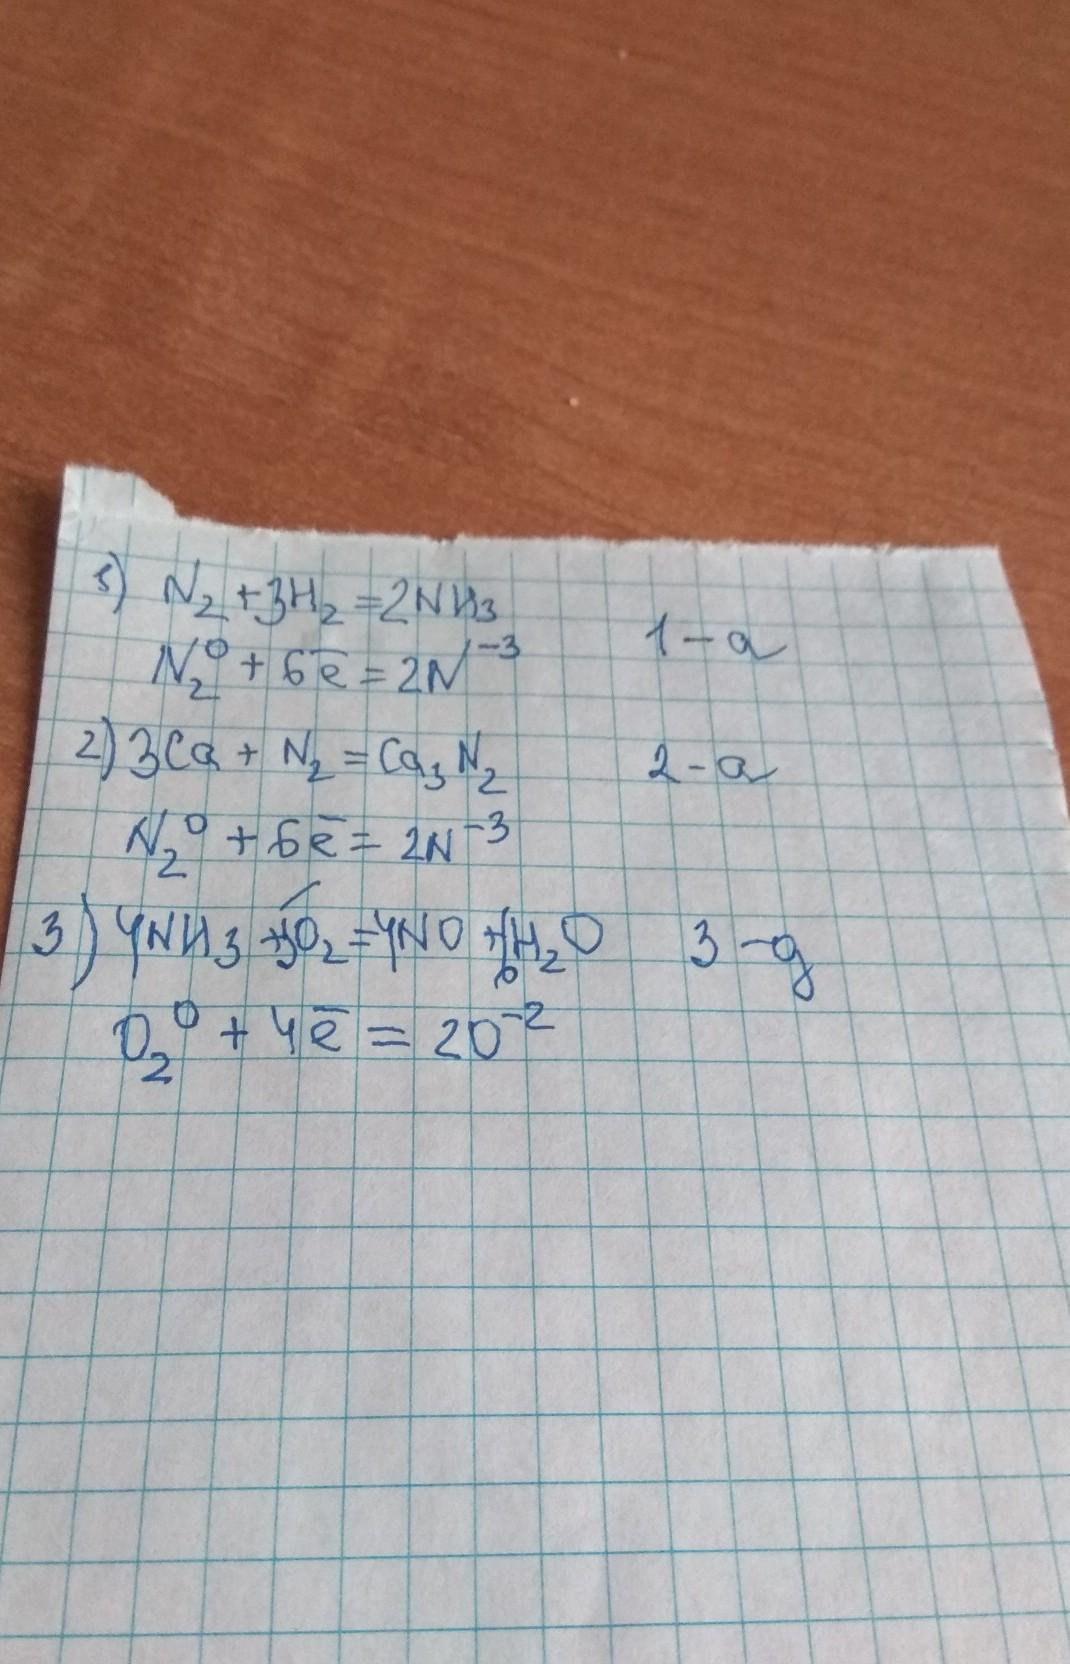 1) N₂ + 3H₂ = 2NH₃
N₂⁰ + 6ē = 2N⁻³
1 – a
2) 3Ca + N₂ = Ca₃N₂
2 – a
N₂⁰ + 6ē = 2N⁻³
3) 4NH₃ + 5O₂ = 4NO + 6H₂O
3 – g
O₂⁰ + 4ē = 2O⁻²